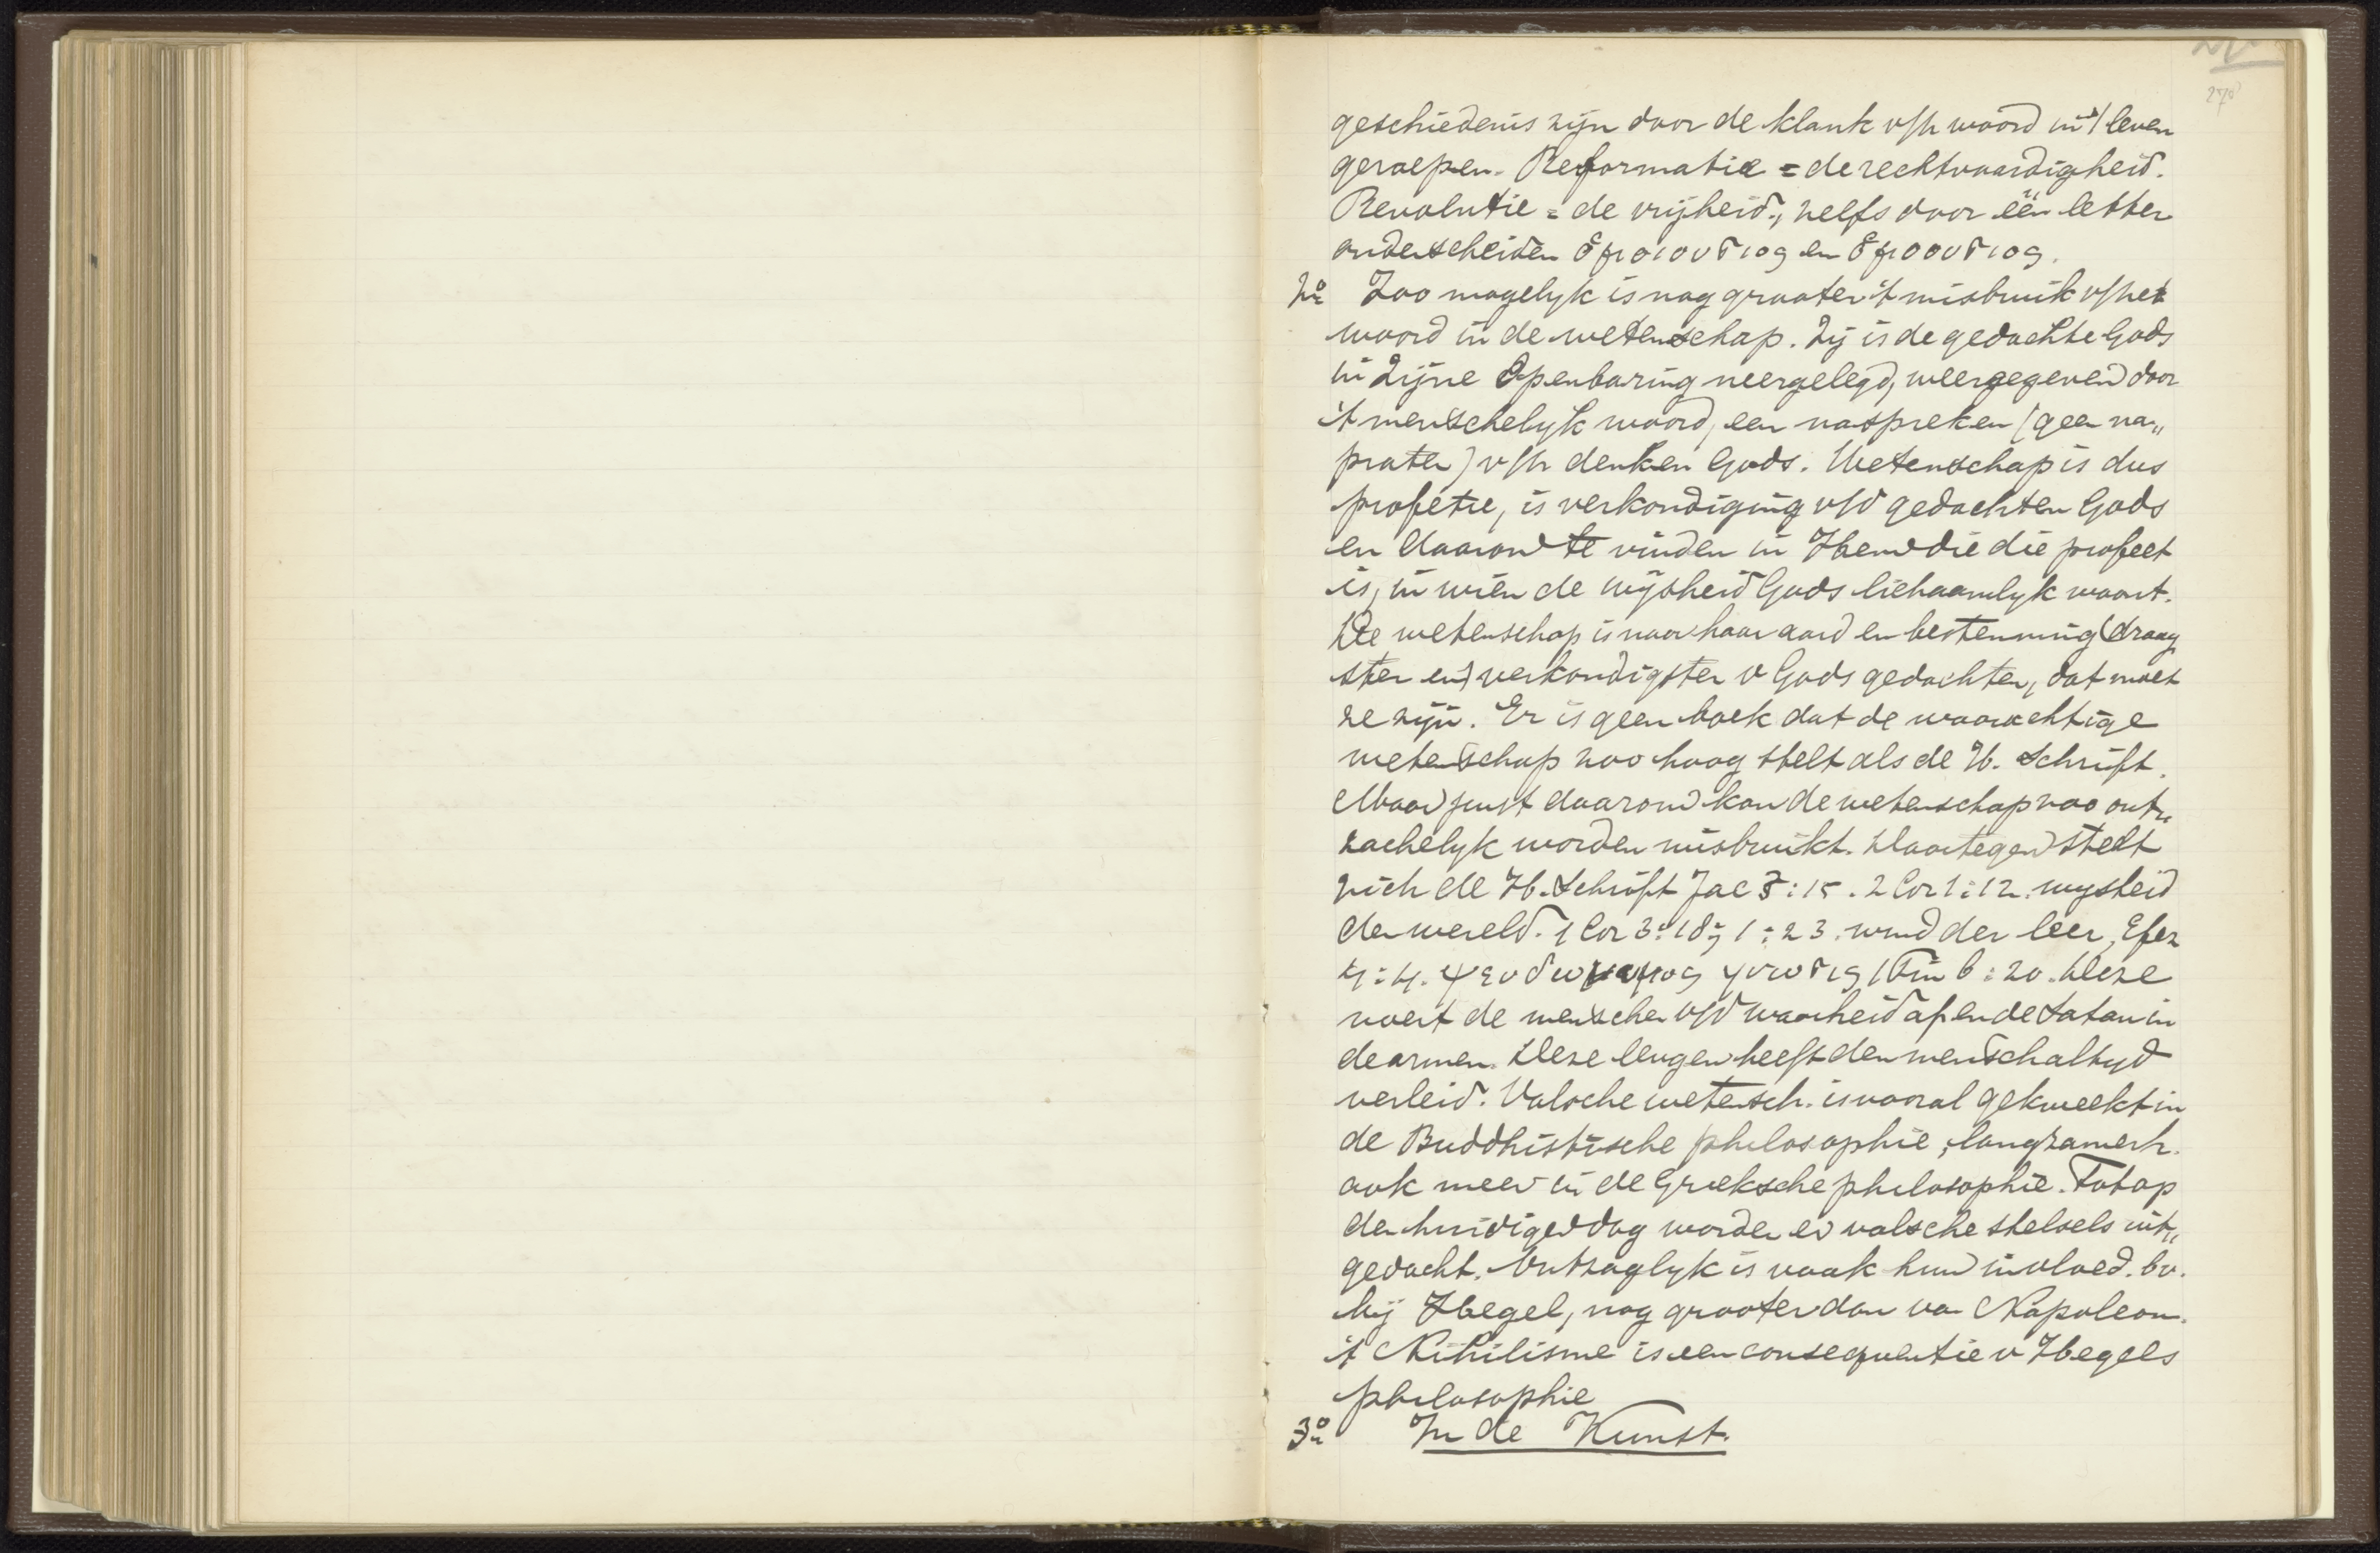 270
geschiedenis zijn door de klank v/h woord in 't leven
geroepen. Reformatie = de rechtvaardigheid.
Revolutie = de vrijheid., zelfs door één letter
onderscheiden ὁμοιουσιος en ὁμοουσιος.
2o Zoo mogelyk is nog grooter 't misbruik v/het
woord in de wetenschap. Zij is de gedachte Gods
in Zijne Openbaring neergelegd, weergegeven door
't menschelyk woord, een naspreken (geen na„
praten) v/h denken Gods. Wetenschap is dus
profetie, is verkondiging v/d gedachten Gods
en daarom te vinden in Hem die die profeet
is, in wien de wijsheid Gods lichaamlyk woont.
De wetenschap is naar haar aard en bestemming (draag
ster en) verkondigster v Gods gedachten, dat moet
ze zijn. Er is geen boek dat de waarachtige
wetenschap zoo hoog stelt als de H. Schrift.
Maar juist daarom kan de wetenschap zoo ont„
zachelyk worden misbruikt. Daartegen stelt
zich de H. Schrift Jac 3:15. 2 Cor 1:12. wysheid
der wereld. 1 Cor 3:18; 1:23. wind der leer, Efez
4:14. ψευδωνυμος γνωσις 1 Tim 6:20. Deze
voert de menschen v/d waarheid af en de Satan in
de armen. Deze leugen heeft den mensch altyd
verleid. Valsche wetensch. is vooral gekweekt in
de Buddhistische philosophie, langzamerh.
ook meer in de Grieksche philosophie. Tot op
den huidigen dag worden er valsche stelsels uit„
gedacht. Ontzaglyk is vaak hun invloed. bv.
bij Hegel, nog grooter dan van Napoleon.
't Nihilisme is een consequentie v Hegels
philosophie
3o In de Kunst.